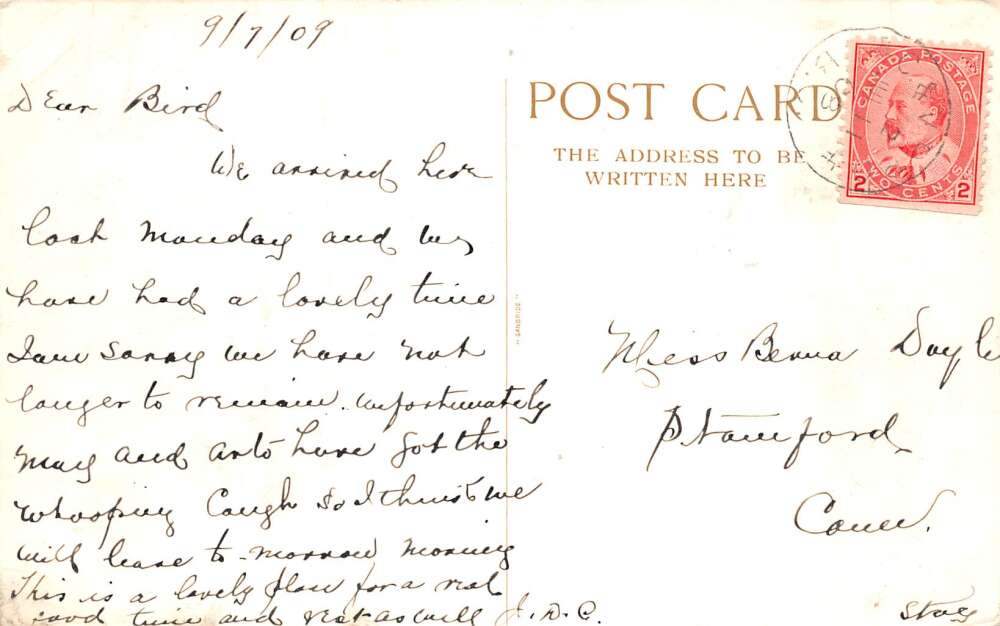 9/7/09
Dear Bird
We arrived here
last Monday and we
have had a lovely time
I am sorry we have not
longer to remain. Unfortunately
May and have got the
whooping Cough so I think we
will leave to-morrow morning
This is a lovely place for a rest
good time and rest as well J.D.C.
POST CARD
THE ADDRESS TO BE
WRITTEN HERE
CANADA POSTAGE
2 TWO CENTS 2
"SANDRIDS"
Miss Berna Doyle
Stamford
Conn.